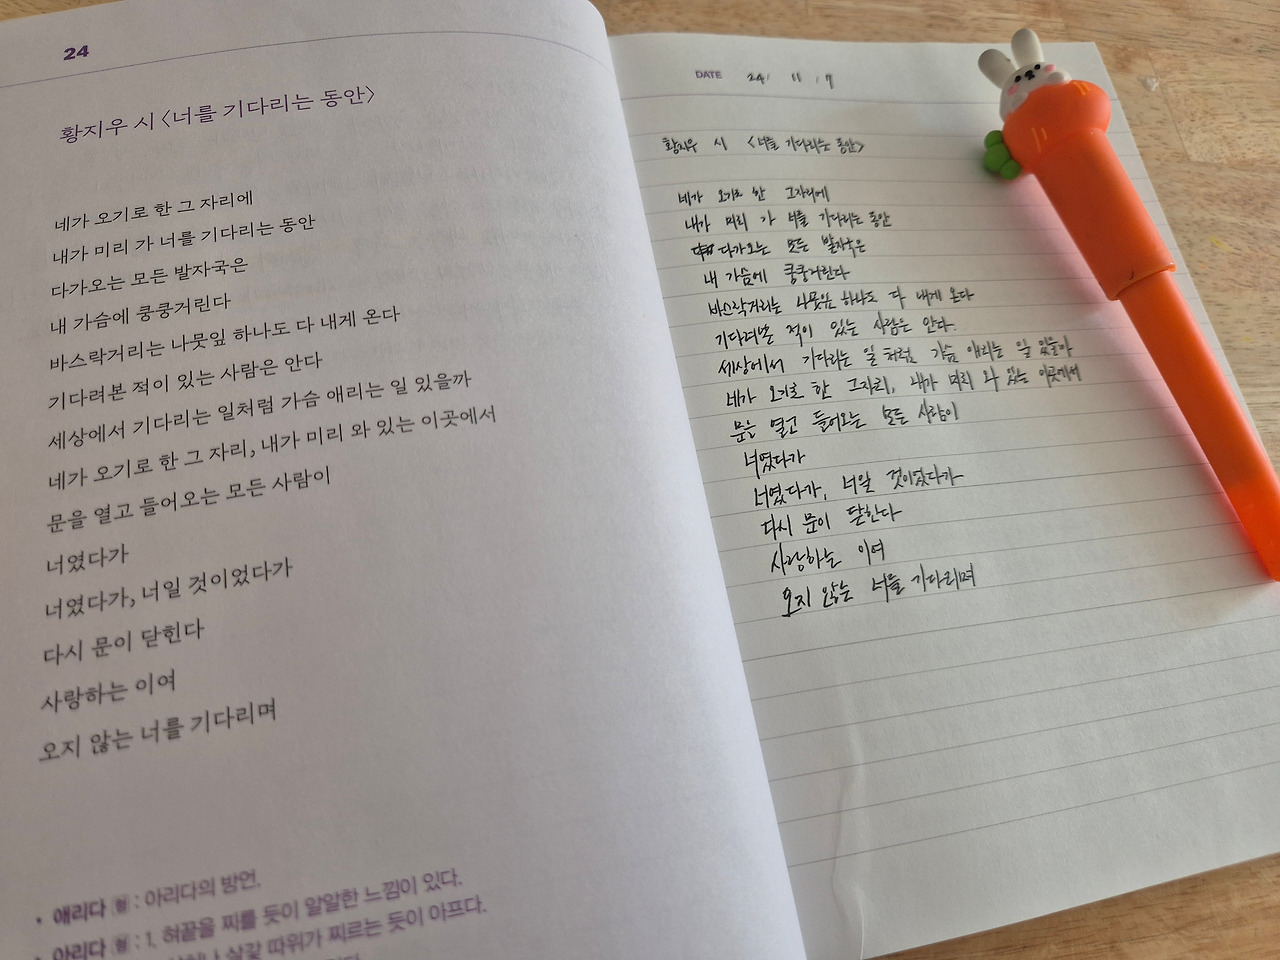 24
황지우 시 <너를 기다리는 동안>
네가 오기로 한 그 자리에
내가 미리 가 너를 기다리는 동안
다가오는 모든 발자국은
내 가슴에 쿵쿵거린다
바스락거리는 나뭇잎 하나도 다 내게 온다
기다려본 적이 있는 사람은 안다
세상에서 기다리는 일처럼 가슴 애리는 일 있을까
네가 오기로 한 그 자리, 내가 미리 와 있는 이곳에서
문을 열고 들어오는 모든 사람이
너였다가
너였다가, 너일 것이었다가
다시 문이 닫힌다
사랑하는 이여
오지 않는 너를 기다리며
• 애리다 형 : 아리다의 방언.
아리다 형 : 1. 혀끝을 찌를 듯이 알알한 느낌이 있다.
살갗 따위가 찌르는 듯이 아프다.
DATE 24/ 11 / 7
황지우 시 <너를 기다리는 동안>
네가 오기로 한 그자리에
내가 미리 가 너를 기다리는 동안
다가오는 모든 발자국은
내 가슴에 쿵쿵거린다
바스락거리는 나뭇잎 하나도 다 내게 온다
기다려본 적이 있는 사람은 안다.
세상에서 기다리는 일처럼 가슴 애리는 일 있을까
네가 오기로 한 그자리, 내가 미리 와 있는 이곳에서
문을 열고 들어오는 모든 사람이
너였다가
너였다가, 너일 것이었다가
다시 문이 닫힌다
사랑하는 이여
오지 않는 너를 기다리며